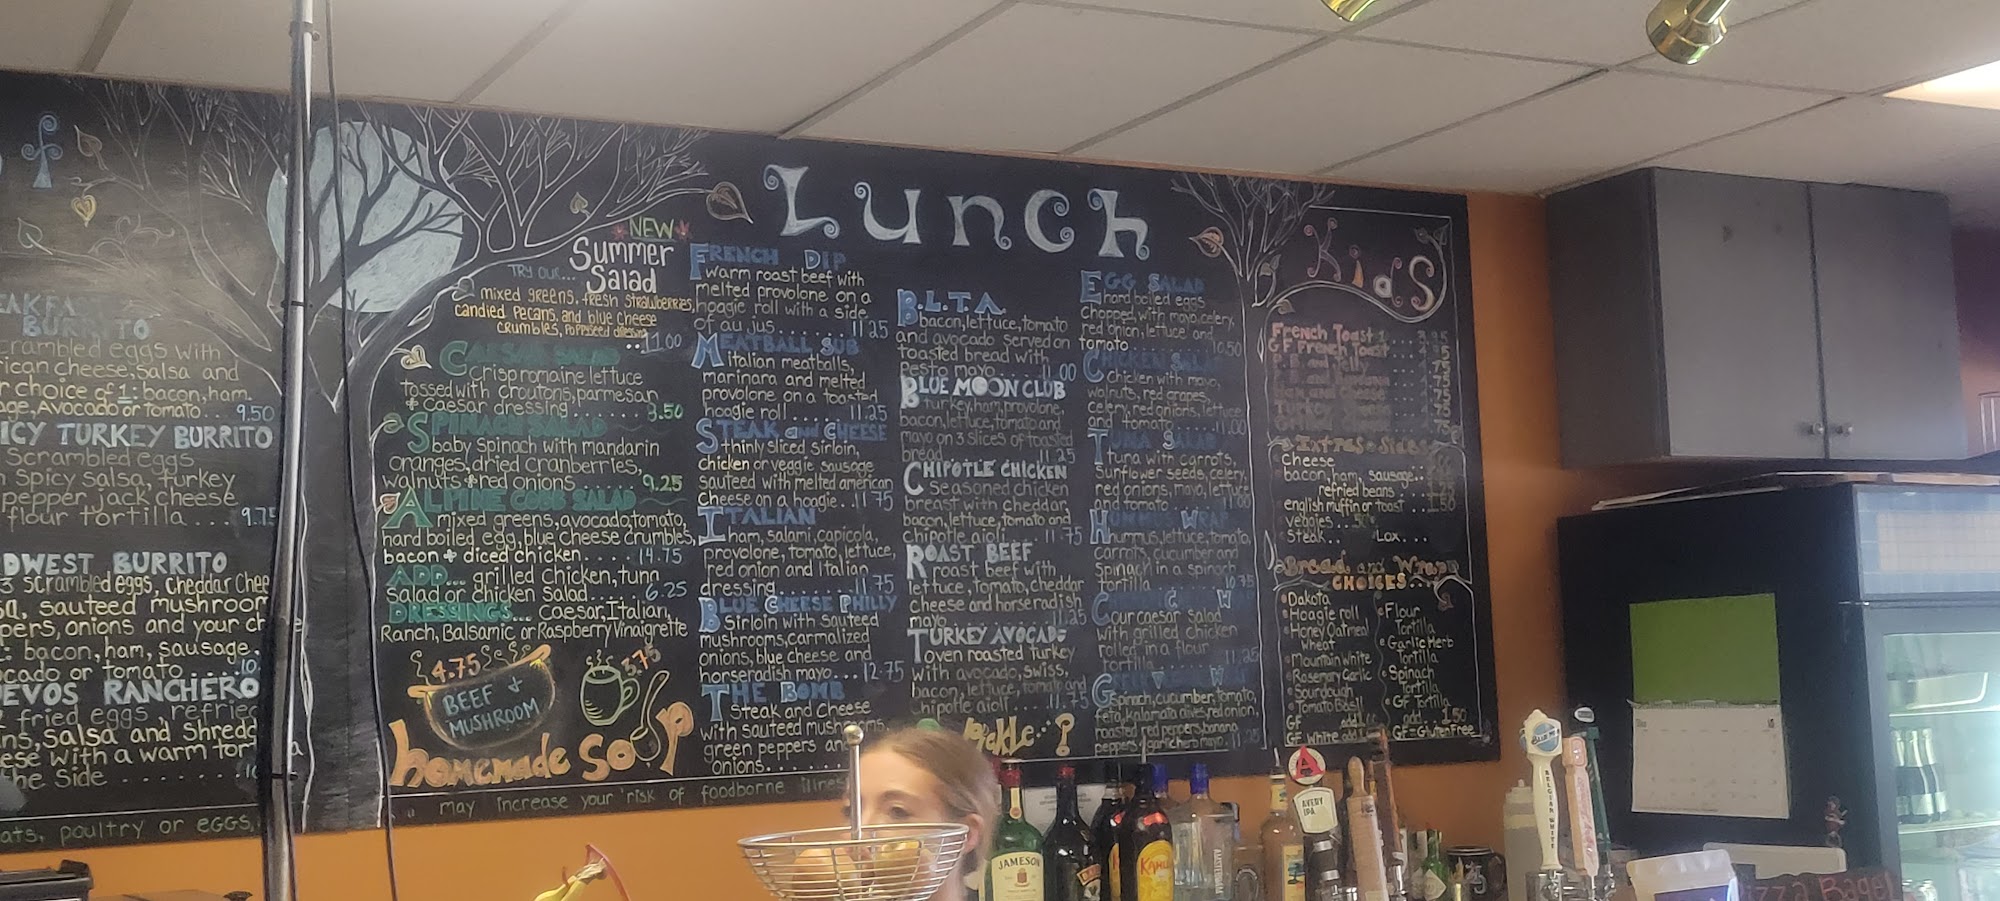 f
BURRITO
scrambled eggs with
rican cheese, salsa and
r choice of 1: bacon, ham.
age, Avocado or tomato... 9.50
ICY TURKEY BURRITO
scrambled eggs
spicy salsa, turkey
pepper jack cheese
flour tortilla ... 9.75
DWEST BURRITO
3 scrambled eggs, cheddar Chee
sa, sauteed mushroom
pers, onions and your ch
: bacon, ham, sausage,
ocado or tomato
EVOS RANCHERO
fried eggs, refried
ns, salsa and shredd
ese with a warm tor
the side
ats, poultry or eggs,
may increase your risk of foodborne illness
Lunch
NEW
TRY OUR... Summer
Salad
mixed greens, fresh strawberries,
candied pecans, and blue cheese
crumbles, Poppyseed dressing
11.00
CAESAR SALAD
Crisp romaine lettuce
tossed with croutons, parmesan
+ caesar dressing ........ 8.50
SPINACH SALAD
baby spinach with mandarin
oranges, dried cranberries,
walnuts + red onions ...... 9.25
ALPINE COBB SALAD
mixed greens, avocado, tomato,
hard boiled egg, blue cheese crumbles,
bacon + diced chicken..... 14.75
ADD... grilled chicken, tuna
salad or chicken salad..... 6.25
DRESSINGS... Caesar, Italian,
Ranch, Balsamic or Raspberry Vinaigrette
4.75
3.75
BEEF +
MUSHROOM
homemade soup
FRENCH DIP
warm roast beef with
melted provolone on a
hoagie roll with a side
of au jus..... 11.25
MEATBALL SUB
italian meatballs,
marinara and melted
provolone on a toasted
hoagie roll .... 11.25
STEAK and CHEESE
thinly sliced sirloin,
chicken or veggie sausage
sauteed with melted american
cheese on a hoagie.. 11.75
ITALIAN
ham, salami, capicola,
provolone, tomato, lettuce,
red onion and italian
dressing....... 11.75
BLUE CHEESE PHILLY
Sirloin with sauteed
mushrooms, carmalized
onions, blue cheese and
horseradish mayo... 12.75
THE BOMB
Steak and cheese
with sauteed mushrooms,
green peppers and
onions......
B.L.T.A.
bacon, lettuce, tomato
and avocado served on
toasted bread with
pesto mayo.... 11.00
BLUE MOON CLUB
turkey, ham, provolone,
bacon, lettuce, tomato and
mayo on 3 slices of toasted
bread 11.25
CHIPOTLE CHICKEN
seasoned chicken
breast with cheddar,
bacon, lettuce, tomato and
chipotle aioli... 11.75
ROAST BEEF
roast beef with
lettuce, tomato, cheddar
cheese and horseradish
mayo 11.25
TURKEY AVOCADO
oven roasted turkey
with avocado, swiss,
bacon, lettuce, tomato and
Chipotle aioli.... 11.75
Pickle..?
EGG SALAD
hard boiled eggs
chopped, with mayo, celery,
red onion, lettuce and
tomato 10.50
CHICKEN SALAD
Chicken with mayo,
walnuts, red grapes,
celery, red onions, lettuce
and tomato.... 11.00
TUNA SALAD
tuna with carrots,
sunflower seeds, celery,
red onions, mayo, lettuce
11.00
HUMMUS WRAP
Hummus, lettuce, tomato,
carrots, cucumber and
spinach in a spinach
tortilla 10.75
C C W
our caesar salad
with grilled chicken
rolled in a flour
tortilla 11.25
spinach, cucumber, tomato,
feta, kalamata olives, red onion,
roasted red peppers, banana
peppers + garlic herb mayo. 11.25
Kids
French Toast
GF French Toast
Extras + Sides
Cheese
bacon, ham, sausage..
refried beans
english muffin or toast
veggies
steak.. Lox...
Bread and Wrap
CHOICES...
Dakota
Hoagie roll
Honey Oatmeal
Wheat
Mountain White
Rosemary Garlic
Sourdough
Tomato Basil
GF
GF White
Flour
Tortilla
Garlic Herb
Tortilla
Spinach
Tortilla
GF Tortilla
add 1.50
GF = Gluten Free
JAMESON
AVERY
IPA
BELGIAN WHITE
izza Bagel